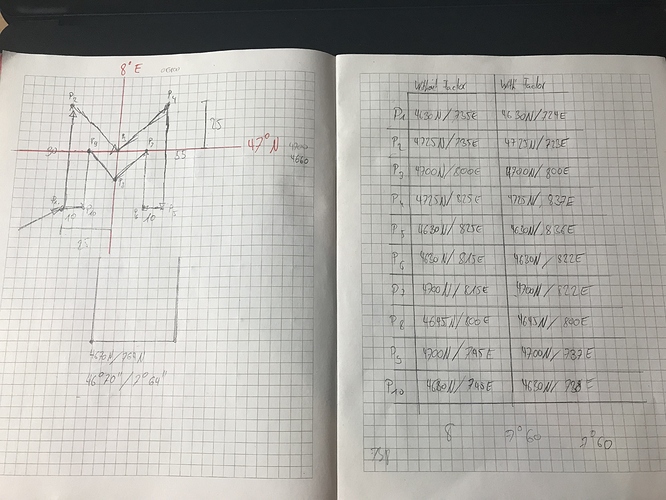 8° E
P2
P4
25
P9
P7
47° N
4700
4660
55
P1
P10
P6
P5
10
10
25
4670N/764N
46°70"/7°64"
without Factor
With Factor
P1 4630N/735E 4630N/724E
P2 4725N/735E 4725N/723E
P3 4700N/800E 4700N/800E
P4 4725N/825E 4725N/837E
P5 4630N/825E 4630N/836E
P6 4630N/815E 4630N/822E
P7 4700N/815E 4700N/822E
P8 4695N/800E 4695N/800E
P9 4700N/745E 4700N/737E
P10 4630N/745E 4630N/738E
8
7°60
7°60
738